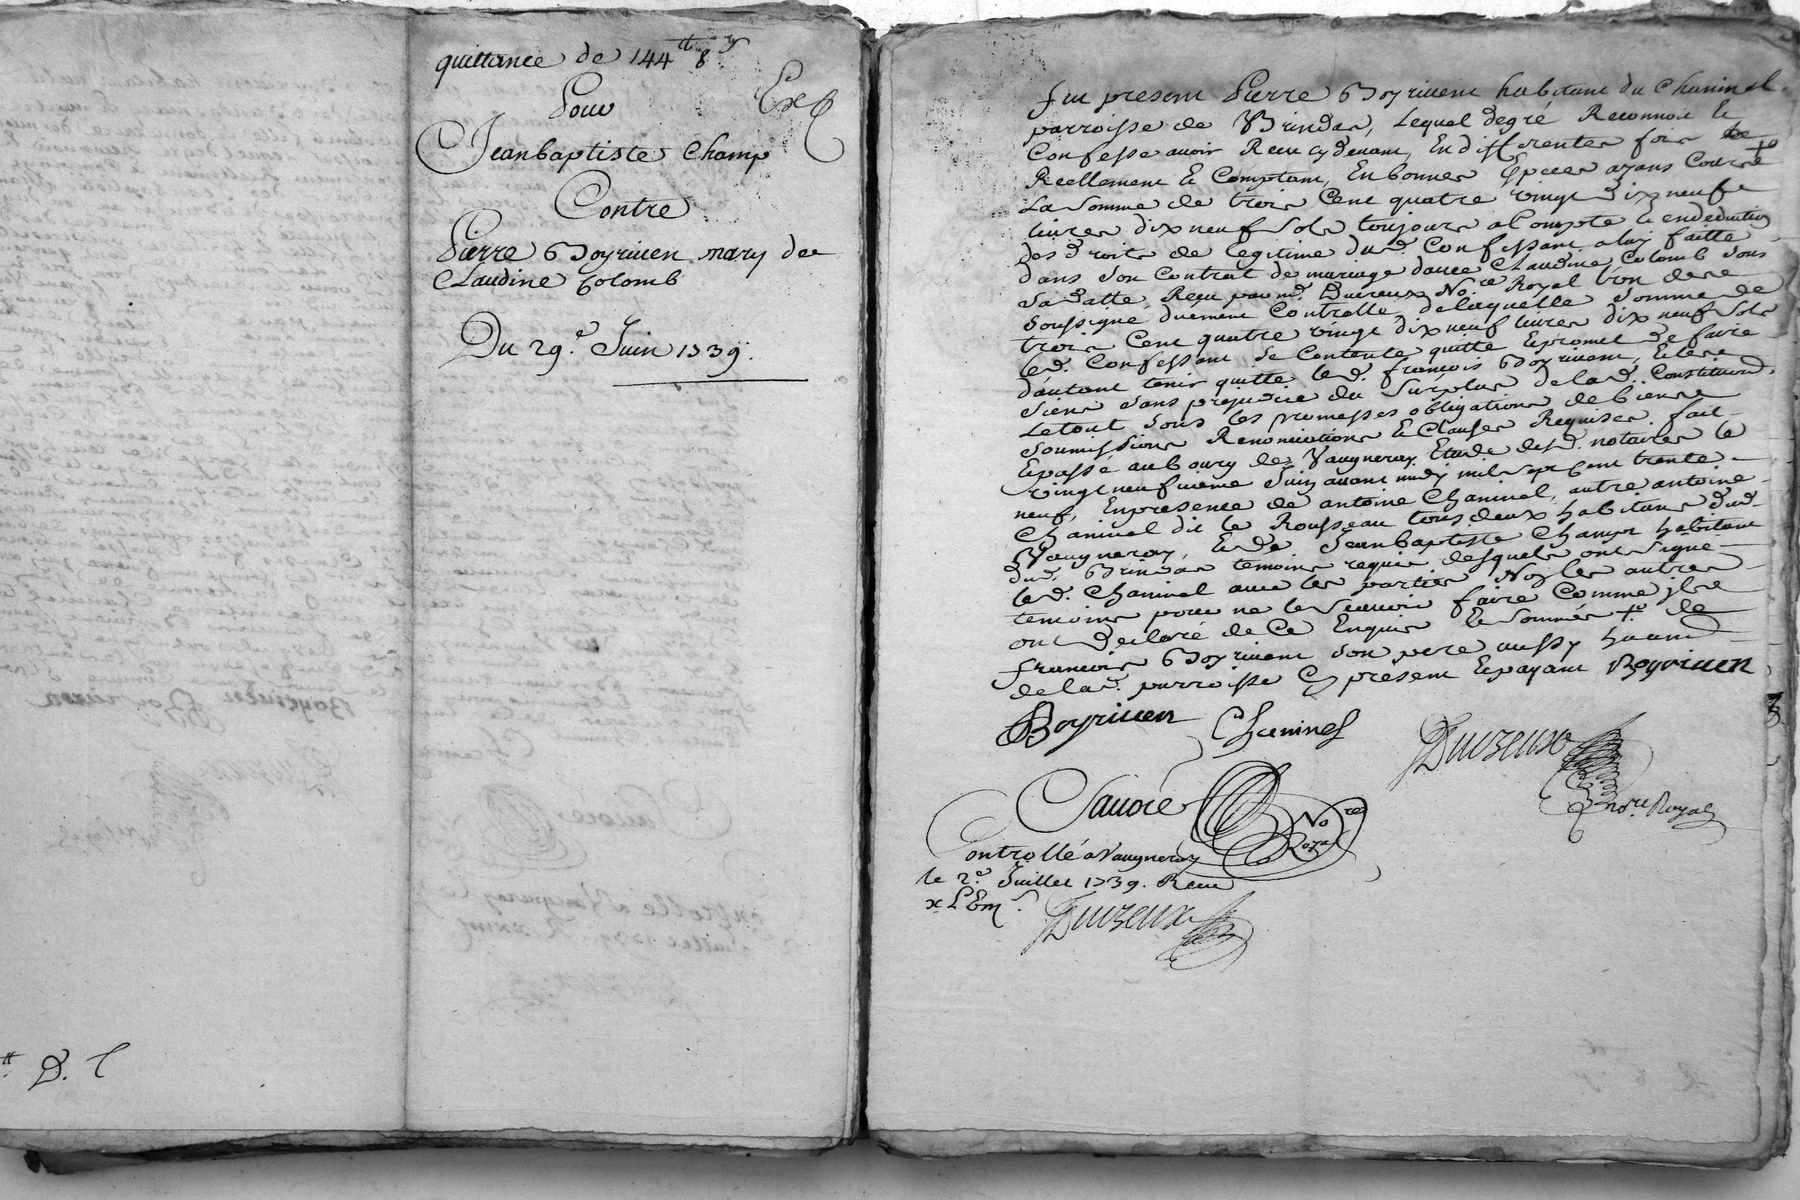 quittance de 144 tt 8 s
Exp
Pour
Jeanbaptiste Champ
Contre
Pierre Boyriven mary de
Claudine Colomb
Du 29e. Juin 1739.
tt
Fut present Pierre Boyrivent habitant du Chaninel
parroisse de Brindas, Lequel degré Reconnoit Et
Confesse avoir Receu cydevant, En differentes fois
Reellement Et Comptant, En bonnes Especes ayans Cours
La Somme de trois Cent quatre vingt dix neuf
livres dix neuf Sols toujours a Compte Et en deduction
des droits de legitime dud. Confessant a luy faitte
dans Son Contrat de mariage avec Claudine Colomb Sous
Sa datte Receu par me. Duireux Nore Royal L'un des
Soussigné duement Controllé de laquelle Somme de
trois Cent quatre vingt dix neuf livres dix neuf Sols
led. Confessant Se Contente quitte Et promet de faire
d'autant tenir quitte led. françois Boyrivent, Et les
Siens Sans prejudice du Surplus de lad. Constitution.
Le tout Sous les promesses obligations de biens
Soumissions Renonciations Et Clauses Requises. fait
Et passé au bourg de Vaugneray Etude desd. notaires le
vingt neufvieme Juin avant midy mil Sept Cent trente
neuf, En presence de antoine Chaninel, autre antoine
Chaninel dit le Rousseau tous deux habitans dud.
Vaugneray, Et de Jeanbaptiste Champ habitant
dud. Brindas temoins requis desquels ont Signé
led. Chaninel avec les parties Non les autres
temoins pour ne le Scavoir faire Comme ils
ont declaré de Ce Enquis Et Sommés + de
françois Boyrivent Son pere aussy habitant
de lad. parroisse Cy present Et payant Boyriven
Boyriven Chaninel
Duizeux
nore. Royal
Savoie
Nore
Royal
Controllé a Vaugneray
le 2e. Juillet 1739. Receu
Duizeux